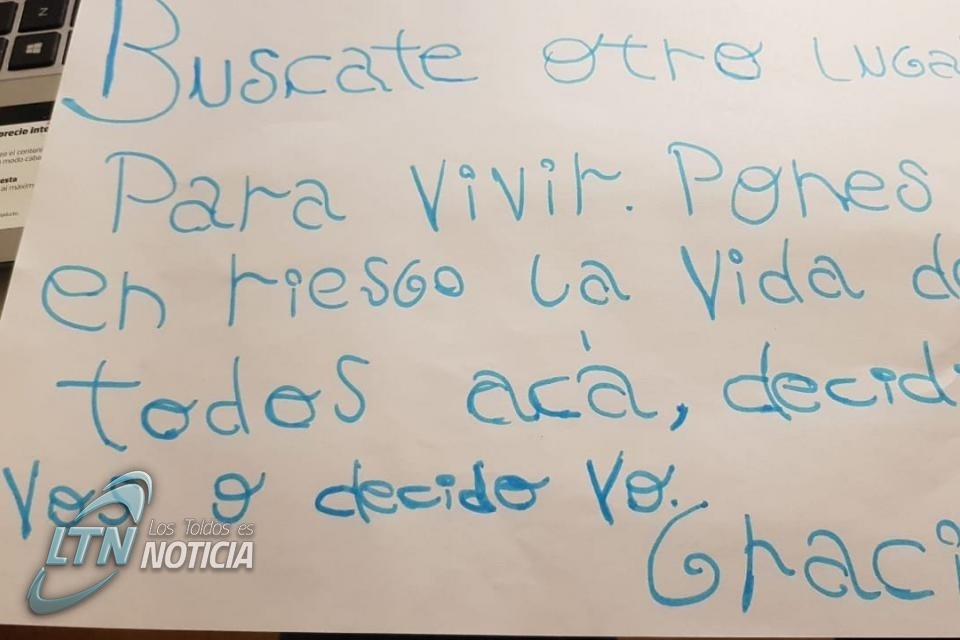 Buscate otro luga
Para vivir. Pones
en riesgo la vida de
todos acá, decidí
vos o decido yo.
Graci
LTN
Los Toldos es
NOTICIA
precio inte
modo
esta
al máxim